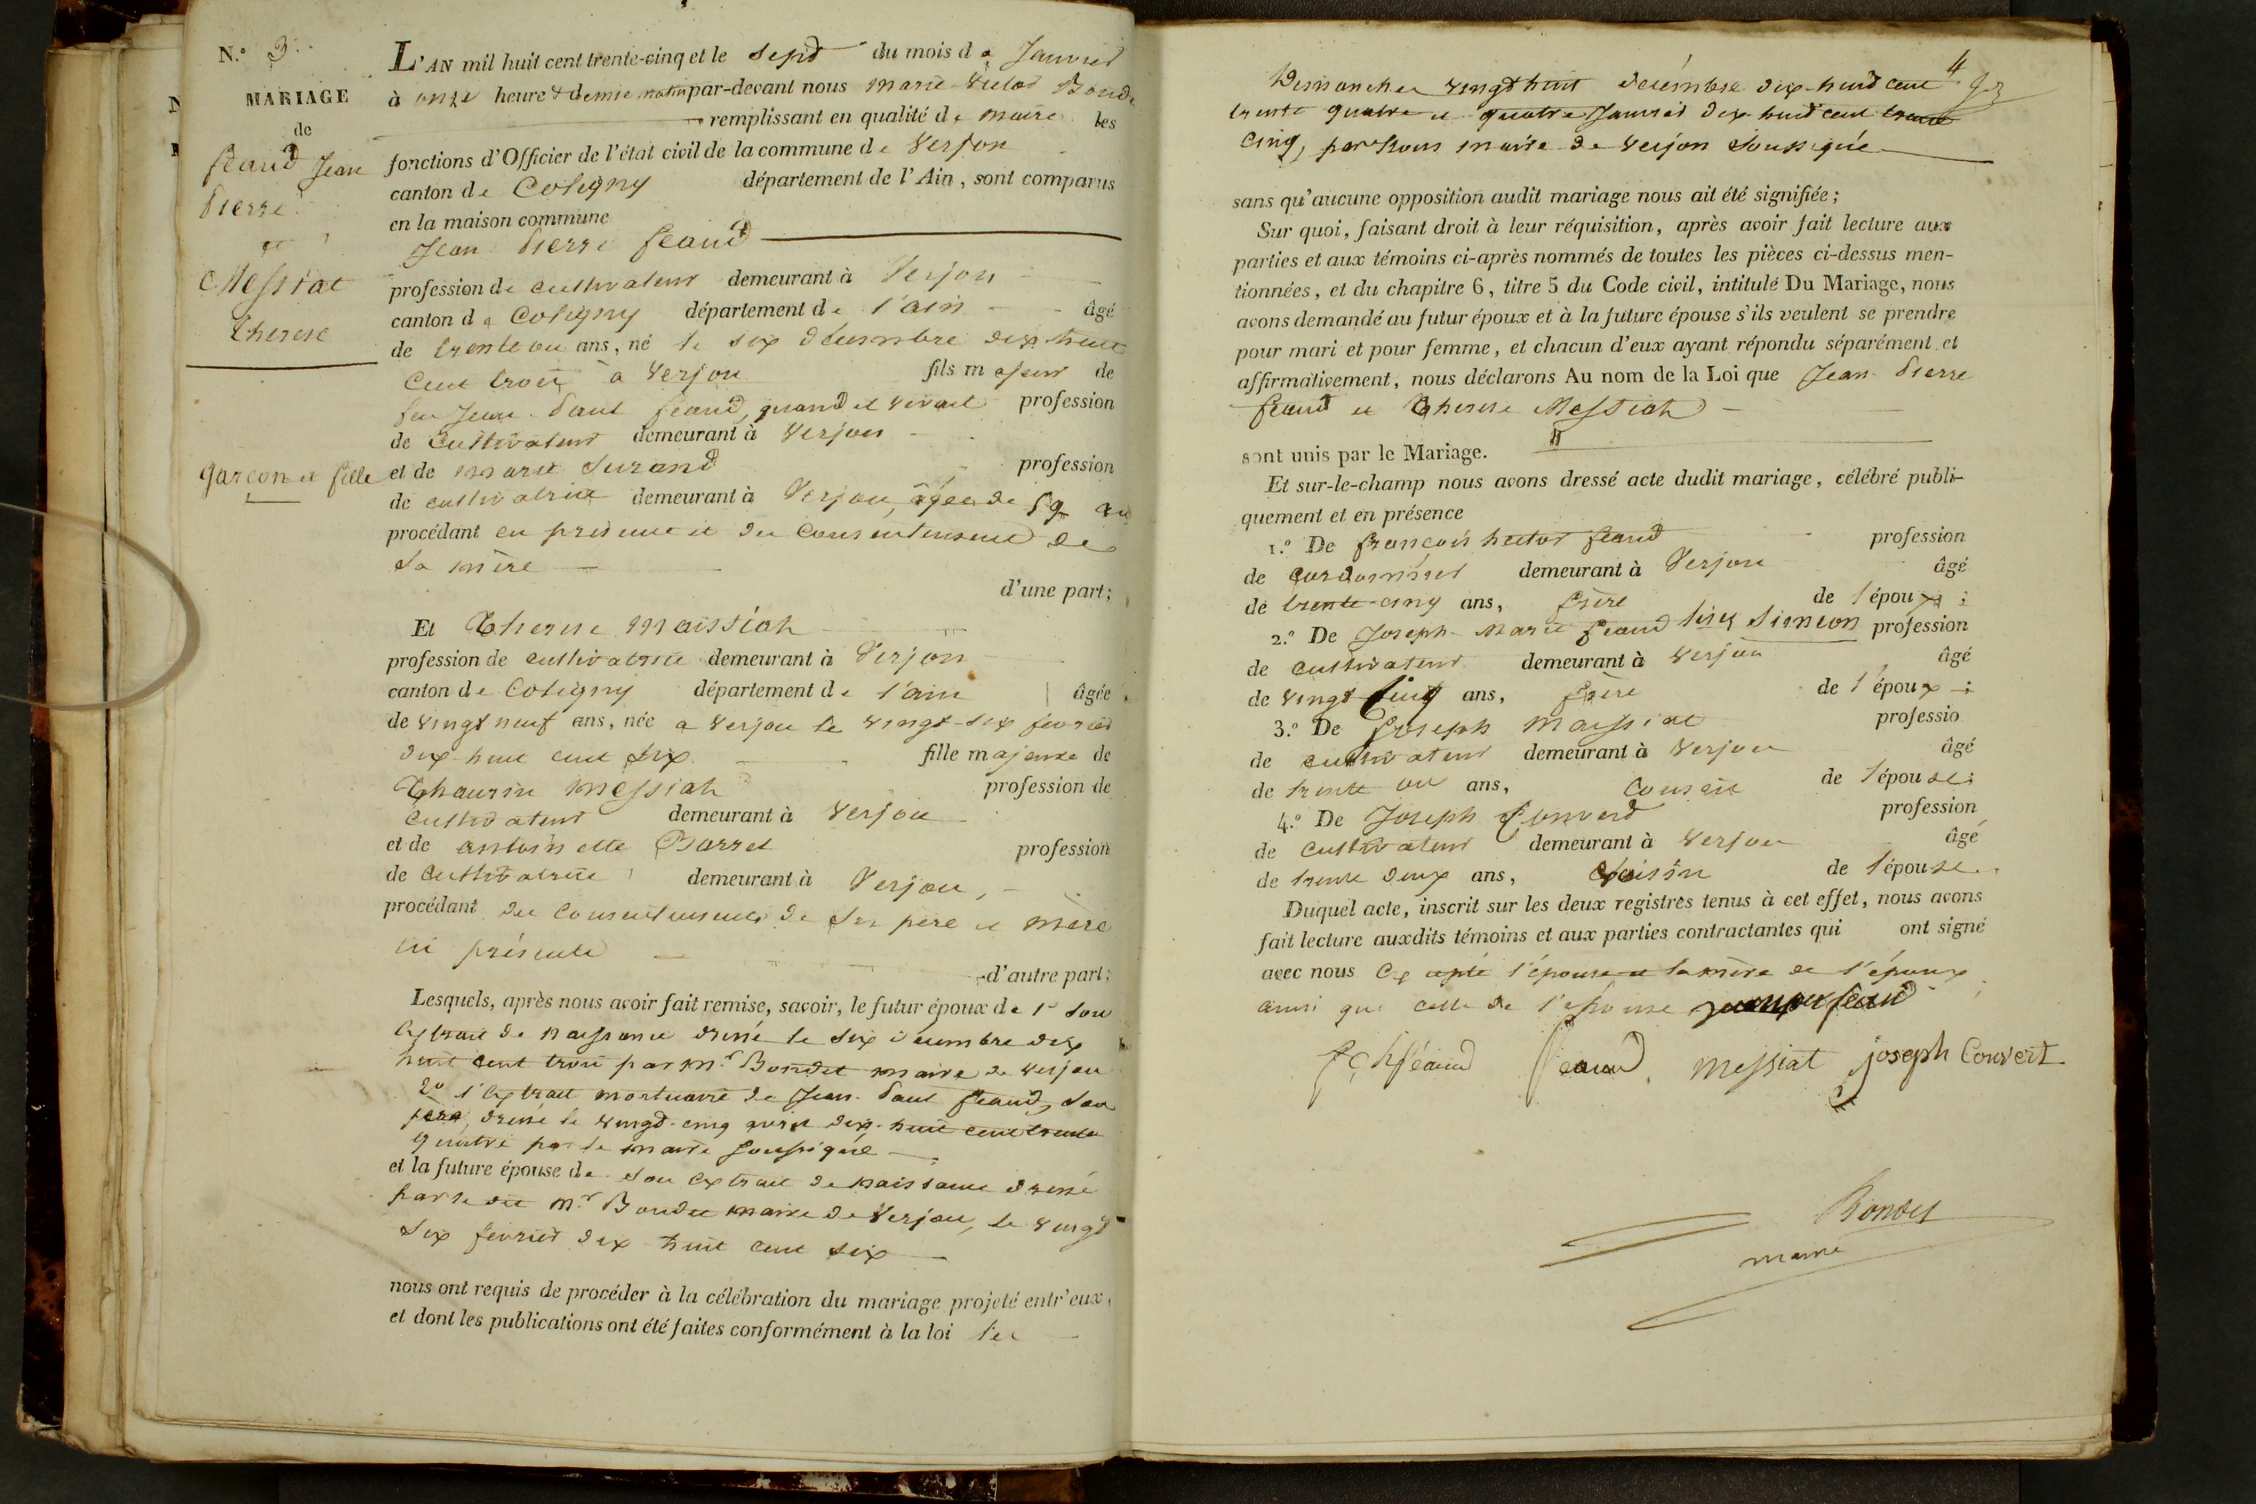 N.° 3.
MARIAGE
de
féaud Jean
Pierre
et
Messiat
therese
garçon et fille
L'AN mil huit cent trente-cinq et le sept du mois de Janvier
à onze heure & demie matin par-devant nous Marie Victor Bondet
remplissant en qualité de maire les
fonctions d'Officier de l'état civil de la commune de Verjon
canton de Coligny département de l'Ain, sont comparus
en la maison commune
Jean Pierre féaud
profession de cultivateur demeurant à Verjon
canton de Coligny département de l'ain âgé
de trente un ans, né le six décembre dix huit
cent trois à Verjon fils majeur de
feu Jean Paul féaud, quand il vivait profession
de cultivateur demeurant à Verjon
et de marie durand profession
de cultivatrice demeurant à Verjon, agée de 59 ans
procédant en présence et du consentement de
sa mère
d'une part;
Et Therese Maissiat
profession de cultivatrice demeurant à Verjon
canton de Coligny département de l'ain âgée
de vingt neuf ans, née a Verjon le vingt-six février
dix-huit cent six fille majeure de
Thaurin Messiat profession de
cultivateur demeurant à Verjon
et de antoinette Barret profession
de cultivatrice demeurant à Verjon,
procédant du consentement de ses père et mère
ici présents
d'autre part:
Lesquels, après nous avoir fait remise, savoir, le futur époux de 1° son
Extrait de naissance dressé le six décembre dix
huit cent trois par Mr. Bondet maire de Verjon
2° l'Extrait mortuaire de Jean Paul féaud, son
père, dressé le vingt-cinq avril dix-huit cent trente
quatre par le maire soussigné
et la future épouse de son Extrait de naissance dressé
par le dit Mr. Bondet maire de Verjon, le vingt
six février dix-huit cent six
nous ont requis de procéder à la célébration du mariage projeté entr'eux,
et dont les publications ont été faites conformément à la loi les
4
Dimanches vingt huit décembre dix-huit cent
trente quatre et quatre Janvier dix huit cent trente
cinq, par Nous maire de Verjon soussigné
sans qu'aucune opposition audit mariage nous ait été signifiée;
Sur quoi, faisant droit à leur réquisition, après avoir fait lecture aux
parties et aux témoins ci-après nommés de toutes les pièces ci-dessus men-
tionnées, et du chapitre 6, titre 5 du Code civil, intitulé Du Mariage, nous
avons demandé au futur époux et à la future épouse s'ils veulent se prendre
pour mari et pour femme, et chacun d'eux ayant répondu séparément et
affirmativement, nous déclarons Au nom de la Loi que Jean Pierre
féaud et Therese Messiat
sont unis par le Mariage.
Et sur-le-champ nous avons dressé acte dudit mariage, célébré publi-
quement et en présence
1.° De françois hector féaud profession
de cordonnier demeurant à Verjon âgé
de trente-cinq ans, frère de l'époux;
2.° De Joseph Marie féaud lisez Simeon profession
de cultivateur demeurant à Verjon âgé
de vingt cinq ans, frère de l'époux;
3.° De Joseph Maissiat professio
de cultivateur demeurant à Verjon âgé
de trente un ans, cousin de l'épouse;
4.° De Joseph Convert profession
de cultivateur demeurant à Verjon âgé
de trente deux ans, voisin de l'épouse.
Duquel acte, inscrit sur les deux registres tenus à cet effet, nous avons
fait lecture auxdits témoins et aux parties contractantes qui ont signé
avec nous Excepté l'épouse et la mère de l'époux
ainsi que celle de l'épouse
féaud féaud Messiat joseph Convert
Bondet
maire